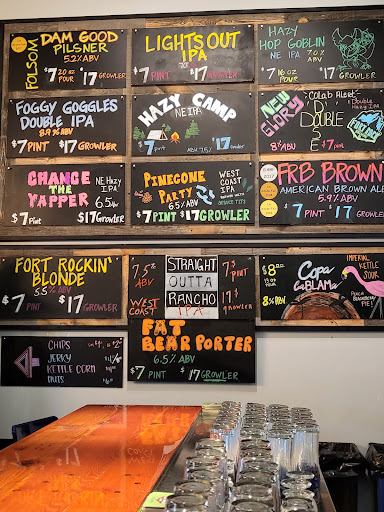 FOLSOM
DAM GOOD
PILSNER
5.2% ABV
$7 20 oz POUR $17 GROWLER
LIGHTS OUT
IPA
$7 PINT $17 GROWLER
HAZY
HOP GOBLIN
NE IPA 7.0% ABV
$7 16 oz POUR $17 GROWLER
FOGGY GOGGLES
DOUBLE IPA
8.9% ABV
$7 PINT $17 GROWLER
HAZY CAMP
NEIPA
$7 PINT ABV 7.5% $17 GROWLER
NEW GLORY
Colab Alert!
"D"
DOUBLE
Double Hazy IPA
8% ABV $7 PINT
CHANGE
THE
YAPPER
NE Hazy
IPA
6.5% ABV
$7 Pint $17 GROWLER
PINECONE
PARTY
6.5% ABV
WEST COAST
IPA
$7 PINT $17 GROWLER
FRB BROWN
AMERICAN BROWN ALE
5.9% ABV
$7 PINT $17 GROWLER
FORT ROCKIN'
BLONDE
5.5% ABV
$7 PINT $17 GROWLER
7.5% ABV
WEST COAST
STRAIGHT
OUTTA
RANCHO
IPA
7$ Pint
17$ growler
$8.00
8% ABV
Copa
CaBLAMa
IMPERIAL KETTLE SOUR
PEACH BLACKBERRY PIE!
FAT
BEAR PORTER
6.5% ABV
$7 PINT $17 GROWLER
CHIPS
JERKY
KETTLE CORN
NUTS